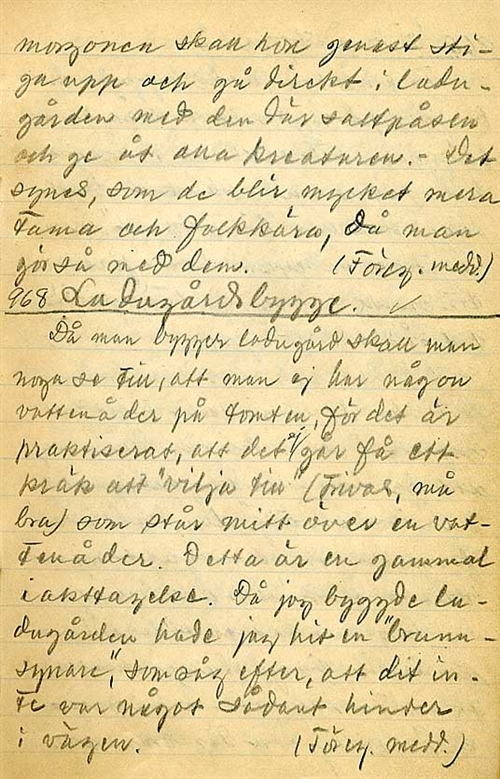 morgonen skall hon genast sti-
ga upp och gå direkt i ladu-
gården med den där saltpåsen
och ge åt alla kreaturen. - Det
synes, som de blir mycket mera
tama och folkkära, då man
gör så med dem. (Föreg. medd.)
968 Ladugårdsbygge.
Då man bygger ladugård skall man
noga se till, att man ej har någon
vattenåder på tomten, för det är
praktiserat, att det ej går få ett
kräk att "vilja till" (trivas, må
bra) som står mitt över en vat-
tenåder. Detta är en gammal
iakttagelse. Då jag byggde la-
dugården hade jag hit en "brunn-
synare", som såg efter, att dit in-
te var något sådant hinder
i vägen. (Föreg. medd.)